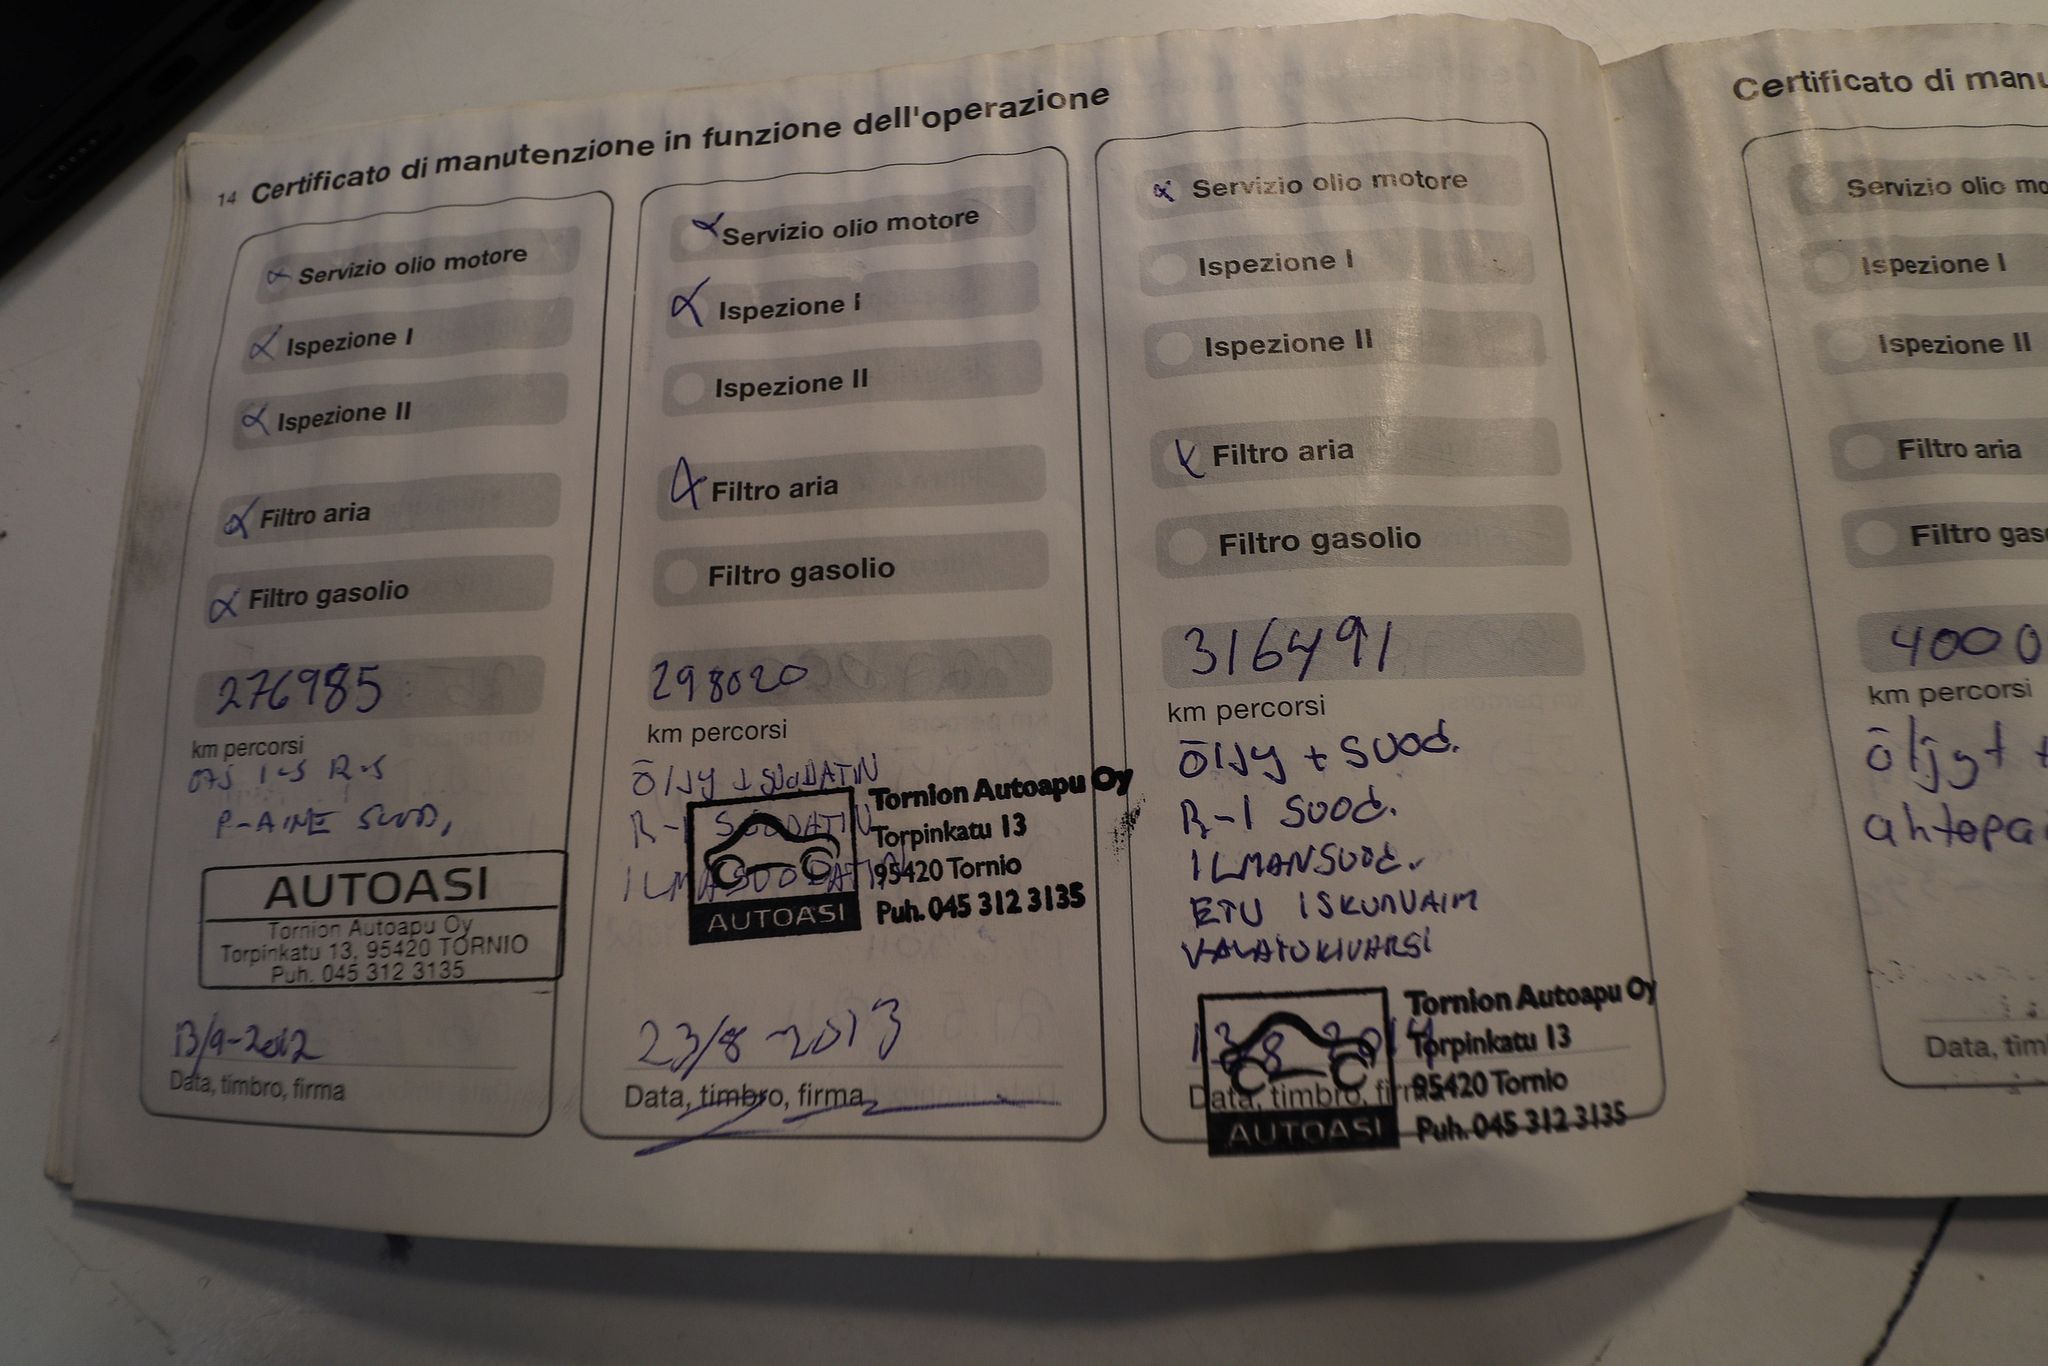 14 Certificato di manutenzione in funzione dell'operazione
Servizio olio motore
Ispezione I
Ispezione II
Filtro aria
Filtro gasolio
276985
km percorsi
P-AINE SUOD.
AUTOASI
Tornion Autoapu Oy
Torpinkatu 13, 95420 TORNIO
Puh. 045 312 3135
13/9-2012
Data, timbro, firma
Servizio olio motore
Ispezione I
Ispezione II
Filtro aria
Filtro gasolio
298020
km percorsi
ÖLJY + SUODATIN
R-I SUODATIN
ILMASUODATIN
AUTOASI
Tornion Autoapu Oy
Torpinkatu 13
95420 Tornio
Puh. 045 312 3135
23/8-2013
Data, timbro, firma
Servizio olio motore
Ispezione I
Ispezione II
Filtro aria
Filtro gasolio
316491
km percorsi
ÖLJY + SUOD.
R-I SUOD.
ILMANSUOD.
ETU ISKUNVAIM
13 8 2014
Data, timbro, firma
AUTOASI
Tornion Autoapu Oy
Torpinkatu 13
95420 Tornio
Puh. 045 312 3135
Certificato di manu
Servizio olio mo
Ispezione I
Ispezione II
Filtro aria
Filtro gas
4000
km percorsi
öljyt +
ahtopa
Data, tim